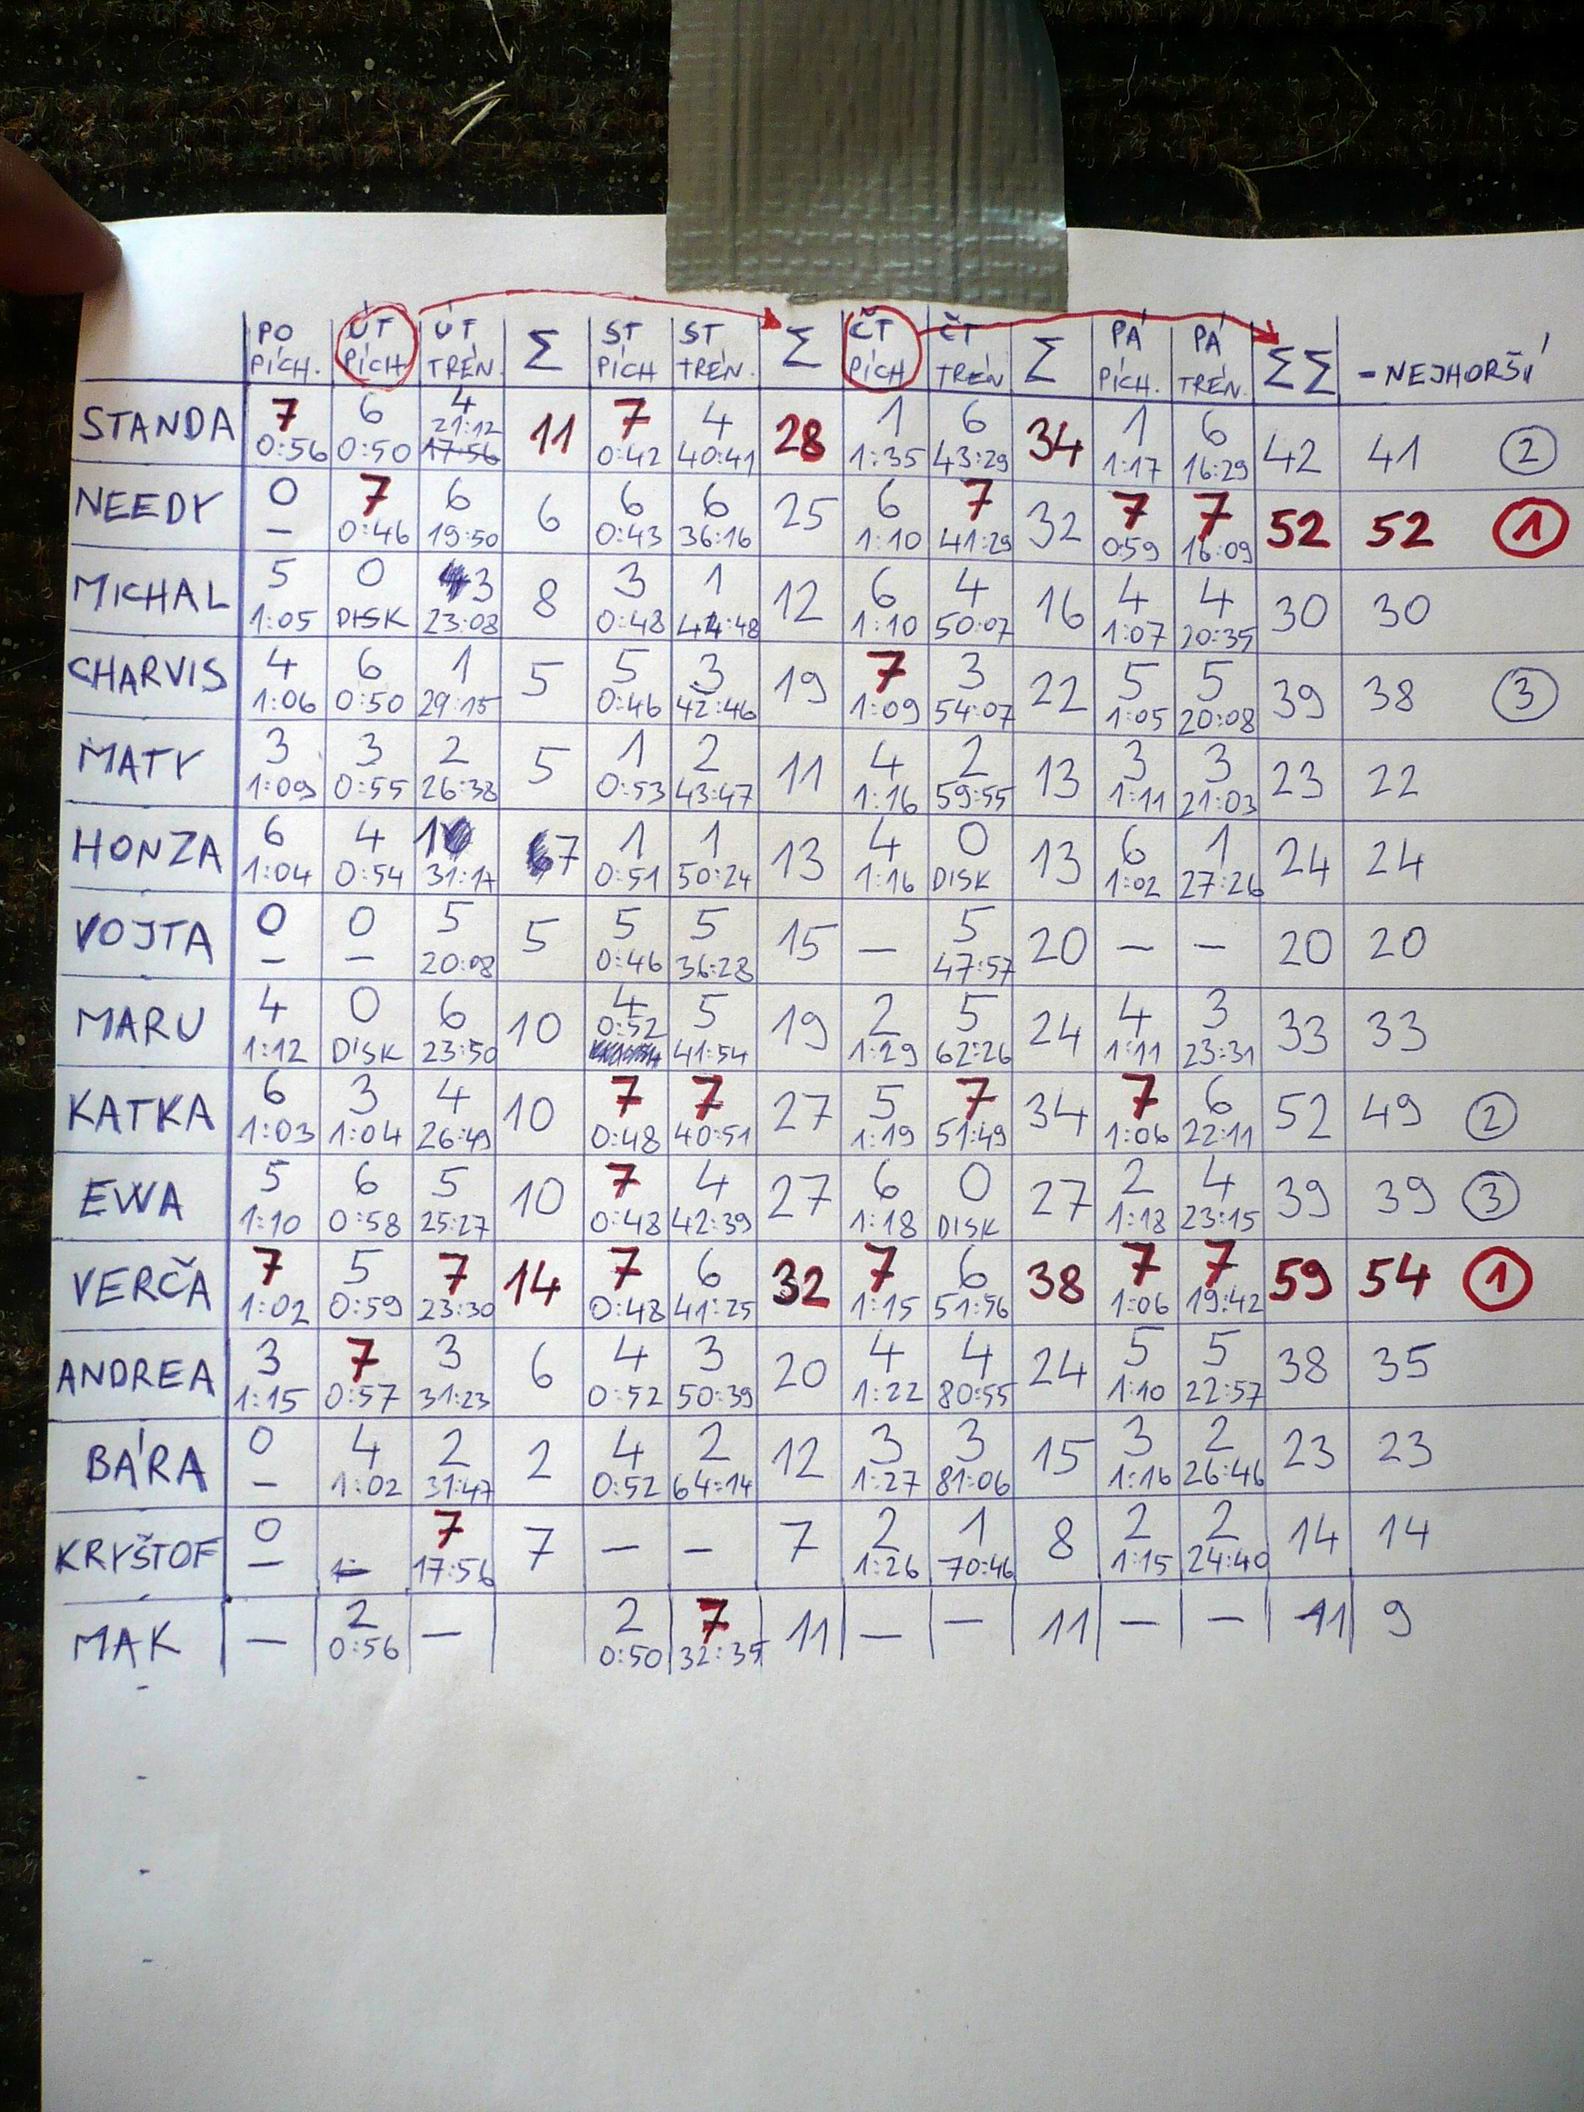 PO ÚT ÚT Σ ST ST Σ ČT ČT Σ PÁ PÁ ΣΣ - NEJHORŠÍ
PÍCH. PÍCH TRÉN. PÍCH TRÉN. PÍCH TRÉN PÍCH. TRÉN.
STANDA 7 6 4 11 7 4 28 1 6 34 1 6 42 41 2
0:56 0:50 21:12 0:42 40:41 1:35 43:29 1:17 16:29
17:56
NEEDY 0 7 6 6 6 6 25 6 7 32 7 7 52 52 1
– 0:46 19:50 0:43 36:16 1:10 41:29 0:59 16:09
MICHAL 5 0 3 8 3 1 12 6 4 16 4 4 30 30
1:05 DISK 23:08 0:48 44:48 1:10 50:07 1:07 20:35
CHARVIS 4 6 1 5 5 3 19 7 3 22 5 5 39 38 3
1:06 0:50 29:15 0:46 42:46 1:09 54:07 1:05 20:08
MATY 3 3 2 5 1 2 11 4 2 13 3 3 23 22
1:09 0:55 26:38 0:53 43:47 1:16 59:55 1:11 21:03
HONZA 6 4 1 7 1 1 13 4 0 13 6 1 24 24
1:04 0:54 31:17 0:51 50:24 1:16 DISK 1:02 27:26
VOJTA 0 0 5 5 5 5 15 – 5 20 – – 20 20
– – 20:08 0:46 36:28 47:57
MARU 4 0 6 10 4 5 19 2 5 24 4 3 33 33
1:12 DISK 23:50 0:52 41:54 1:29 62:26 1:11 23:31
KATKA 6 3 4 10 7 7 27 5 7 34 7 6 52 49 2
1:03 1:04 26:49 0:48 40:51 1:19 51:49 1:06 22:11
EWA 5 6 5 10 7 4 27 6 0 27 2 4 39 39 3
1:10 0:58 25:27 0:48 42:39 1:18 DISK 1:18 23:15
VERČA 7 5 7 14 7 6 32 7 6 38 7 7 59 54 1
1:02 0:59 23:30 0:48 41:25 1:15 51:56 1:06 19:42
ANDREA 3 7 3 6 4 3 20 4 4 24 5 5 38 35
1:15 0:57 31:23 0:52 50:39 1:22 80:55 1:10 22:57
BÁRA 0 4 2 2 4 2 12 3 3 15 3 2 23 23
– 1:02 31:47 0:52 64:14 1:27 81:06 1:16 26:46
KRYŠTOF 0 7 7 – – 7 2 1 8 2 2 14 14
– 17:56 1:26 70:46 1:15 24:40
MAK – 2 – 2 7 11 – – 11 – – 11 9
0:56 0:50 32:35